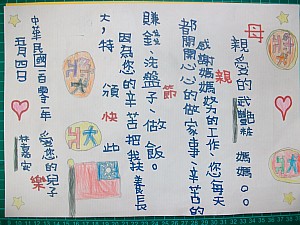 母
親愛的武 媽媽。。
親
感謝媽媽努的工作、您每天
都開開心心的做家事、辛苦的
節
賺錢、洗盤子、做飯。
因為您的辛苦把我扶養長
大,特頒此
快
樂
中華民國一百零一年 愛您的兒子
五月四日 林嘉
大獎
大獎
大獎
大獎